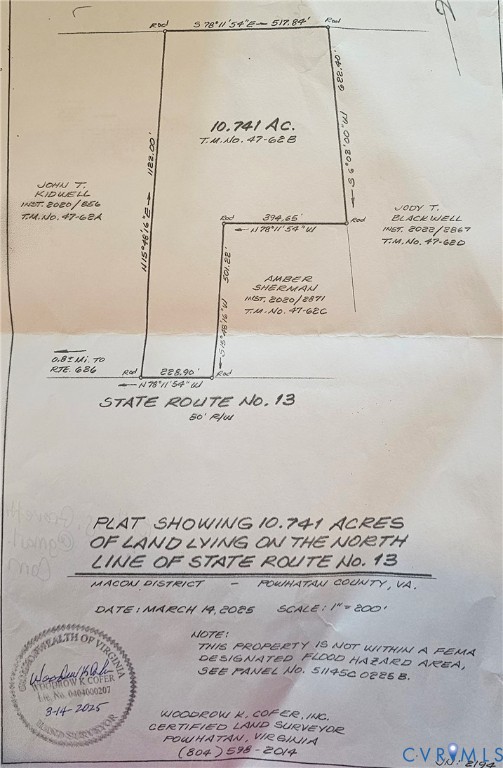 S 78°11'54"E 517.84'
Rod
Rod
622.40'
10.741 AC.
T.M. No. 47-62B
1122.00'
N 15°48'16"E
JOHN T.
KIDWELL
INST. 2020/856
T.M. No. 47-62A
394.65'
N 78°11'54"W
Rod
Rod
JODY T.
BLACKWELL
INST. 2022/2867
T.M. No. 47-62D
AMBER
SHERMAN
INST. 2020/2871
T.M. No. 47-62C
S 15°48'16"W
0.8± Mi. TO
RTE. 686
Rod
228.90'
Rod
N 78°11'54"W
STATE ROUTE No. 13
50' R/W
PLAT SHOWING 10.741 ACRES
OF LAND LYING ON THE NORTH
LINE OF STATE ROUTE No. 13
MACON DISTRICT - POWHATAN COUNTY, VA.
DATE: MARCH 14, 2025 SCALE: 1"=200'
NOTE:
THIS PROPERTY IS NOT WITHIN A FEMA
DESIGNATED FLOOD HAZARD AREA,
SEE PANEL No. 51145C 0225B.
COMMONWEALTH OF VIRGINIA
Woodrow K. Cofer
WOODROW K. COFER
Lic. No. 0404000207
3-14-2025
WOODROW K. COFER, INC.
CERTIFIED LAND SURVEYOR
POWHATAN, VIRGINIA
(804) 598-2014
CVRMLS